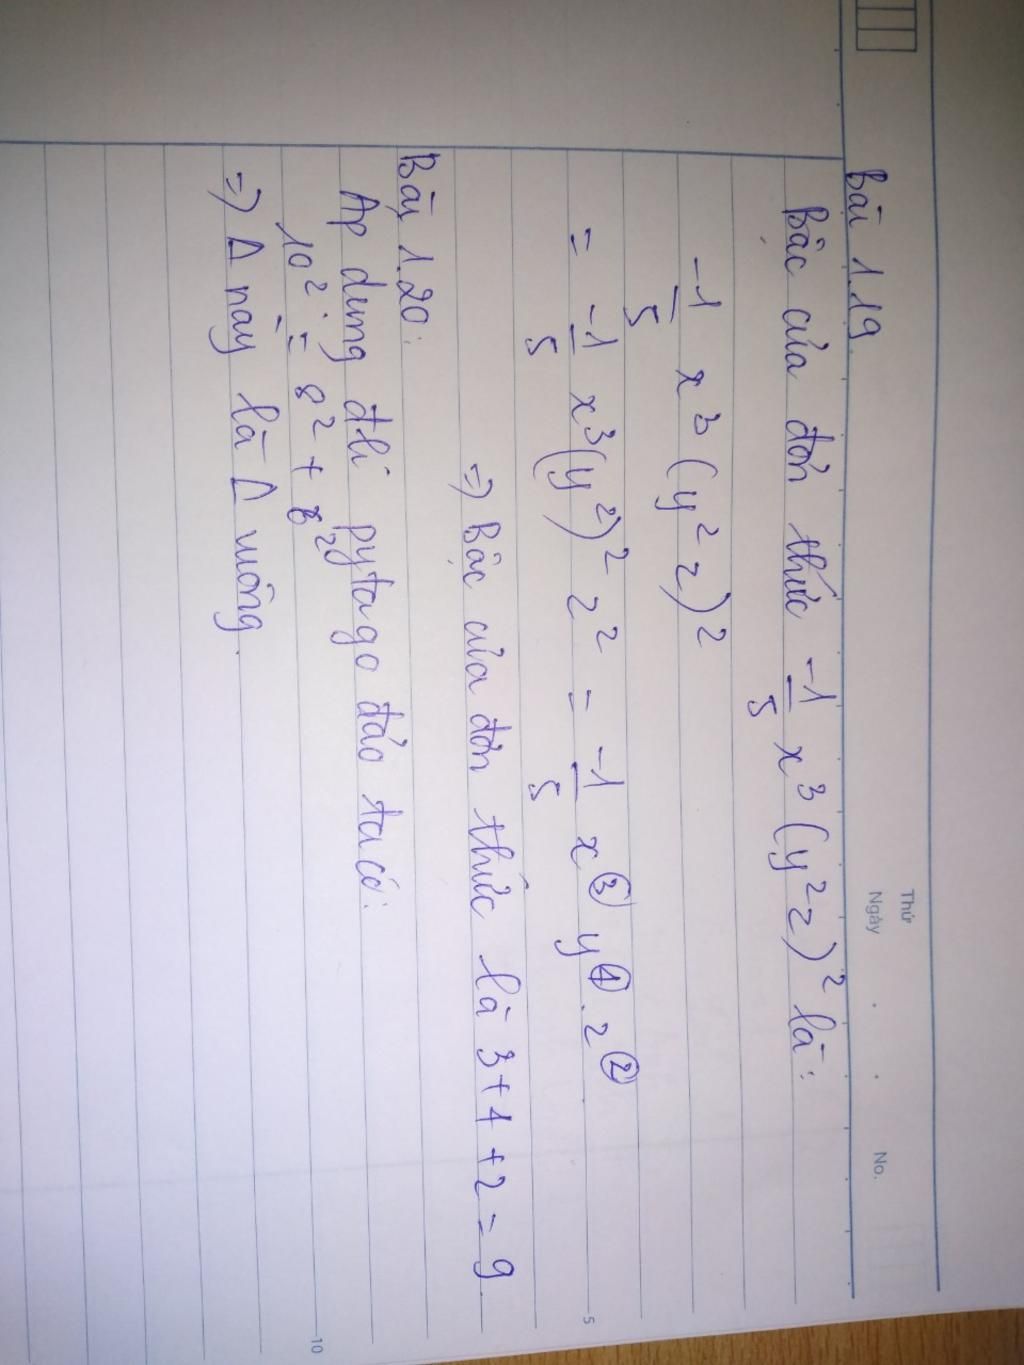 Thứ
Ngày . . No.
Bài 1.19.
Bậc của đơn thức -1/5 x³ (y² z)² là:
-1/5 x³ (y² z)²
= -1/5 x³ (y²)² z² = -1/5 x³ y⁴ . z²
=) Bậc của đơn thức là 3 + 4 + 2 = 9
5
Bài 1.20:
Áp dụng đlí pytago đảo ta có:
10² = 8² +
10
=) Δ này là Δ vuông.